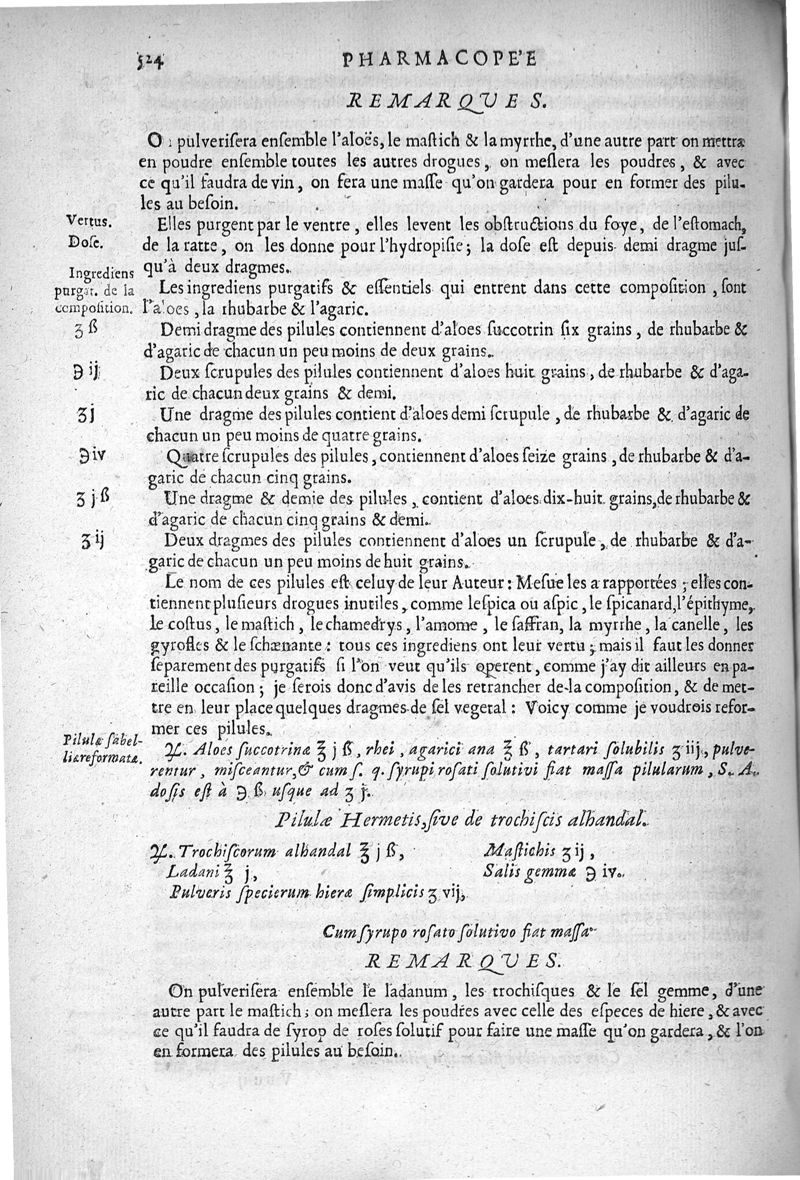 524 PHARMACOPE'E
REMARQUES.
On pulveriſera enſemble l'aloës, le maſtich & la myrrhe, d'une autre part on mettra
en poudre enſemble toutes les autres drogues, on meſlera les poudres, & avec
ce qu'il faudra de vin, on fera une maſſe qu'on gardera pour en former des pilu-
les au beſoin.
Vertus.
Elles purgent par le ventre, elles levent les obſtructions du foye, de l'eſtomach,
Doſe.
de la ratte, on les donne pour l'hydropiſie; la doſe eſt depuis demi dragme juſ
qu'à deux dragmes.
Ingrediens
purgat. de la
compoſition.
Les ingrediens purgatifs & eſſentiels qui entrent dans cette compoſition, ſont
l'aloes, la rhubarbe & l'agaric.
ʒ ß
Demi dragme des pilules contiennent d'aloes ſuccotrin ſix grains, de rhubarbe &
d'agaric de chacun un peu moins de deux grains.
℈ ij
Deux ſcrupules des pilules contiennent d'aloes huit grains, de rhubarbe & d'aga-
ric de chacun deux grains & demi.
ʒj
Une dragme des pilules contient d'aloes demi ſcrupule, de rhubarbe & d'agaric de
chacun un peu moins de quatre grains.
℈ iv
Quatre ſcrupules des pilules, contiennent d'aloes ſeize grains, de rhubarbe & d'a-
garic de chacun cinq grains.
ʒ j ß
Une dragme & demie des pilules, contient d'aloes dix-huit grains, de rhubarbe &
d'agaric de chacun cinq grains & demi.
ʒ ij
Deux dragmes des pilules contiennent d'aloes un ſcrupule, de rhubarbe & d'a-
garic de chacun un peu moins de huit grains.
Le nom de ces pilules eſt celuy de leur Auteur: Meſue les a rapportées; elles con-
tiennent pluſieurs drogues inutiles, comme leſpica ou aſpic, le ſpicanard, l'épithyme,
le coſtus, le maſtich, le chamedrys, l'amome, le ſaffran, la myrrhe, la canelle, les
gyrofles & le ſchænante: tous ces ingrediens ont leur vertu; mais il faut les donner
ſeparement des purgatifs ſi l'on veut qu'ils operent, comme j'ay dit ailleurs en pa-
reille occaſion; je ſerois donc d'avis de les retrancher de-la compoſition, & de met-
tre en leur place quelques dragmes de ſel vegetal: Voicy comme je voudrois refor-
mer ces pilules.
Pilulæ ſabel-
liæ reformatæ.
♃. Aloes ſuccotrinæ ℥ j ß, rhei, agarici ana ℥ ß, tartari ſolubilis ʒ iij, pulve-
rentur, miſceantur, & cum ſ. q. ſyrupi roſati ſolutivi fiat maſſa pilularum, S. A.
doſis eſt à ℈ ß uſque ad ʒ j.
Pilulæ Hermetis, ſive de trochiſcis alhandal.
♃. Trochiſcorum alhandal ℥ j ß,
Ladani ℥ j,
Pulveris ſpecierum hieræ ſimplicis ʒ vij,
Maſtichis ʒ ij,
Salis gemmæ ℈ iv.
Cum ſyrupo roſato ſolutivo fiat maſſa
REMARQUES.
On pulveriſera enſemble le ladanum, les trochiſques & le ſel gemme, d'une
autre part le maſtich; on meſlera les poudres avec celle des eſpeces de hiere, & avec
ce qu'il faudra de ſyrop de roſes ſolutif pour faire une maſſe qu'on gardera, & l'on
en formera des pilules au beſoin.